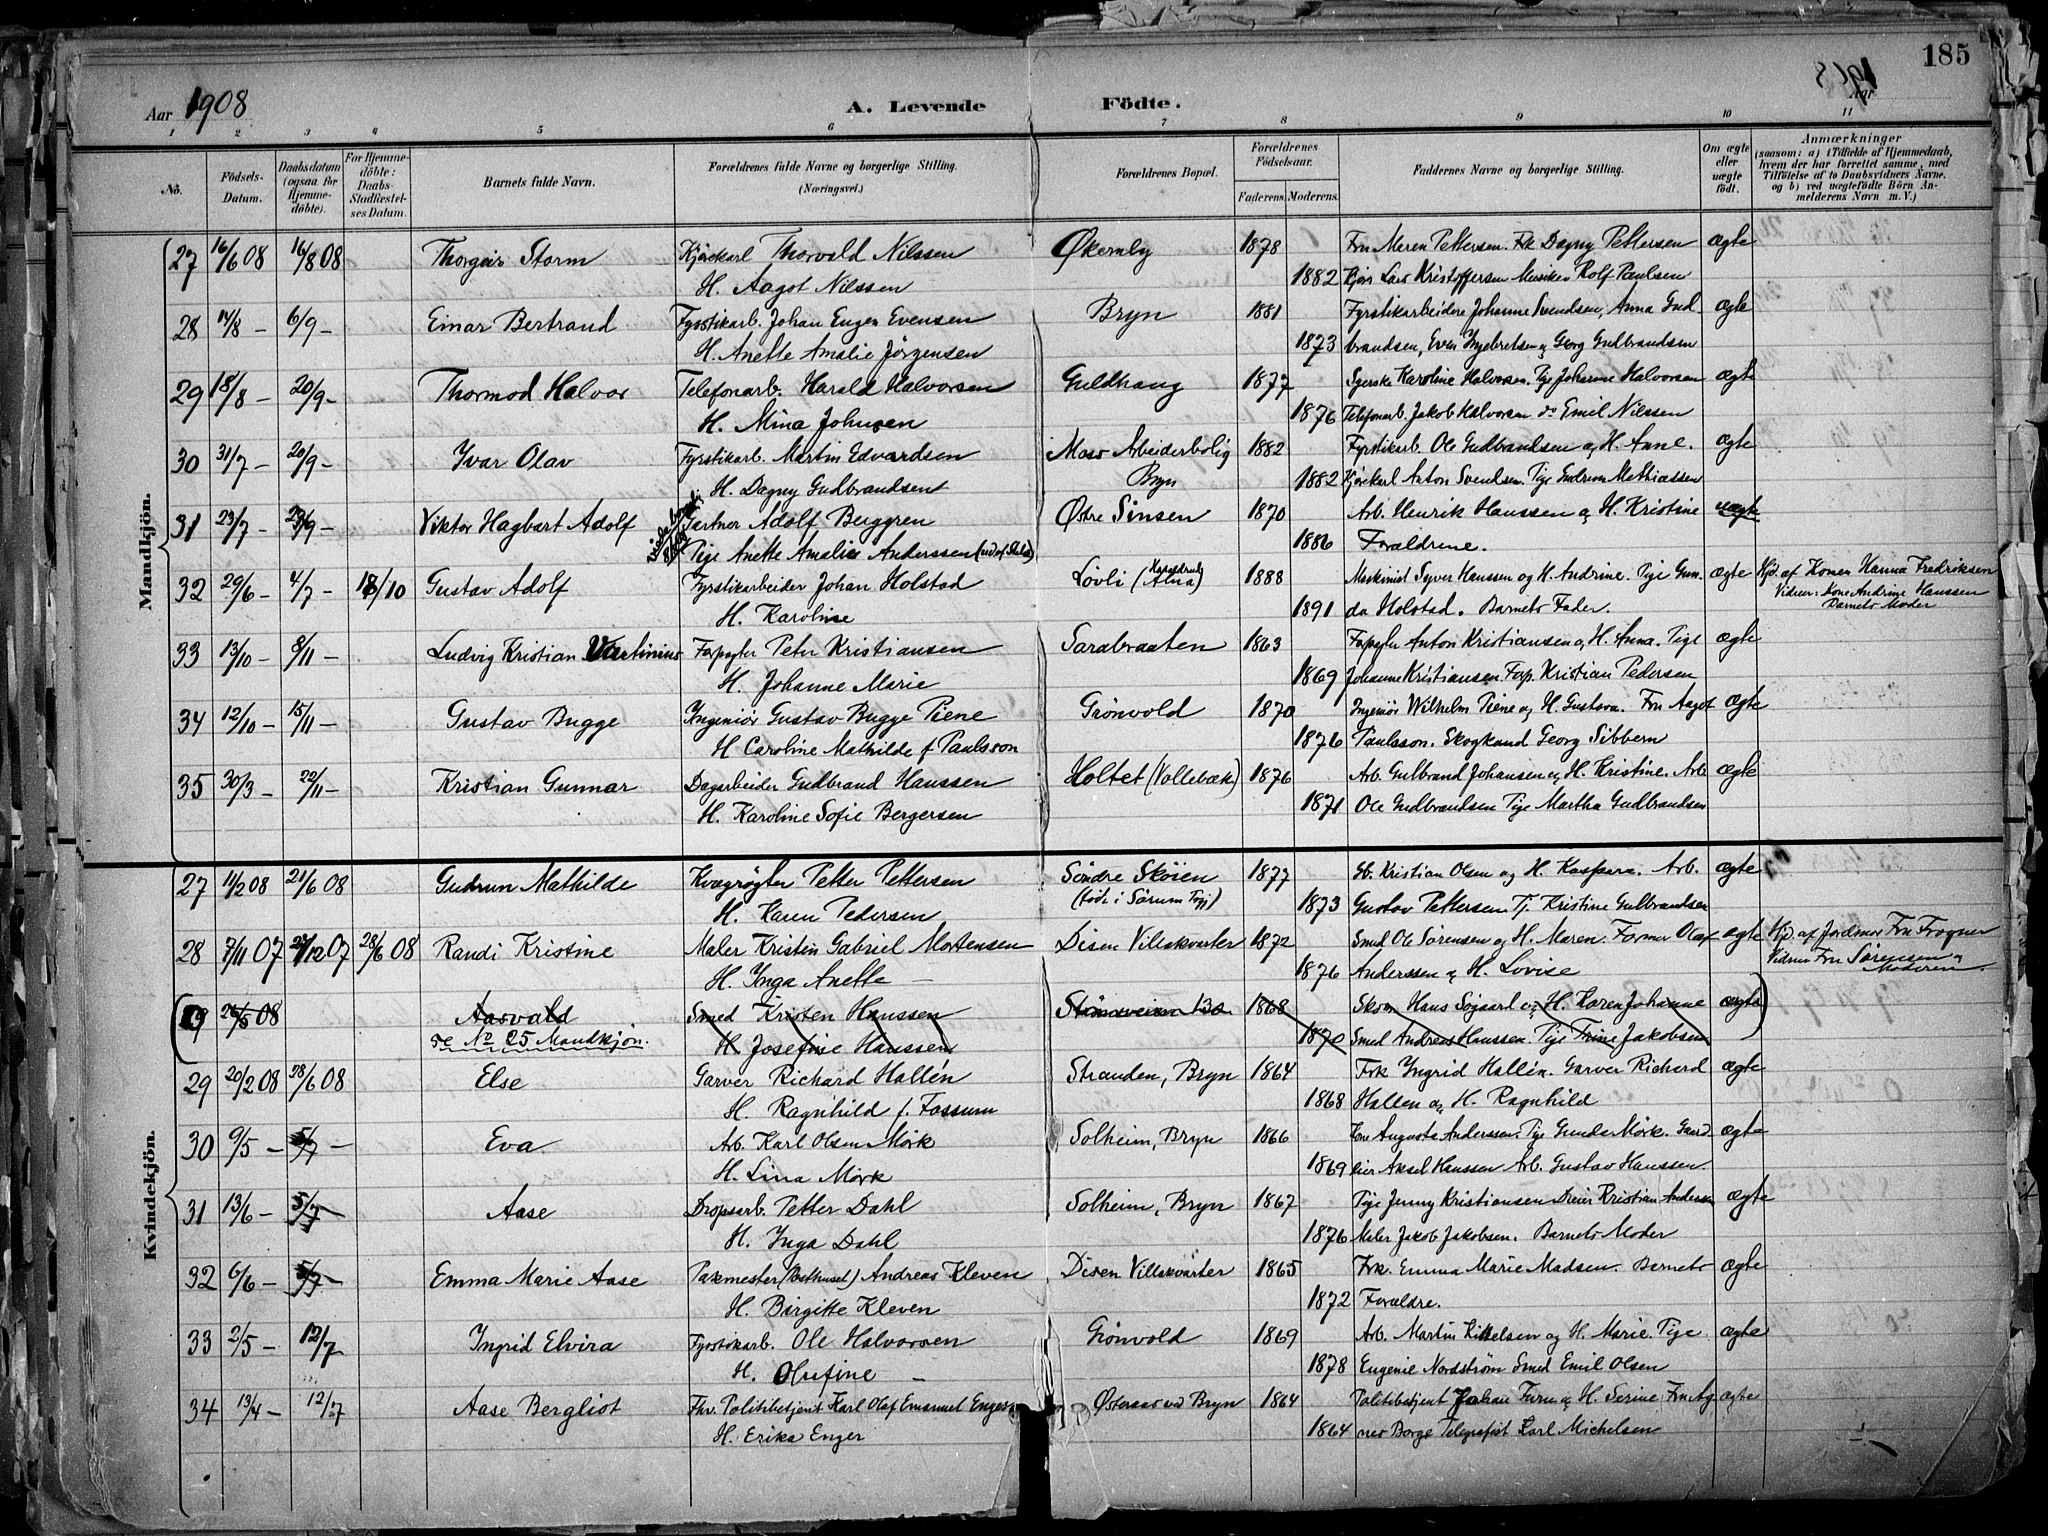 185
Aar 1908
A. Levende Födte.
1908 Aar
1 2 3 4 5 6 7 8 9 10 11
No.
Födsels-Datum.
Daabsdatum (ogsaa for Hjemmedöbte).
For Hjemmedöbte: Daabs-Stadfæstelses Datum.
Barnets fulde Navn.
Forældrenes fulde Navne og borgerlige Stilling. (Næringsvei.)
Forældrenes Bopæl.
Forældrenes Födselsaar.
Faderens. Moderens.
Faddernes Navne og borgerlige Stilling.
Om ægte eller uægte födt.
Anmærkninger
(saasom: a) i Tilfælde af Hjemmedaab, hvem der har forrettet samme, med Tilföielse af to Daabsvidners Navne. og b) ved uægtefödte Börn Anmelderens Navn m. V.)
Mandkjön.
27 16/6 08 16/8 08 Thorgeir Storm Kjørekarl Thorvald Nilssen Økernby 1878 Fru Maren Pettersen. Frk Dagny Pettersen ægte
H. Aagot Nilssen 1882 Kjøis Lars Kristoffersen Musiker Rolf Paulsen
28 14/8 – 6/9 – Einar Bertrand Fyrstikarb. Johan Eugen Evensen Bryn 1881 Fyrstikarbeidere Johanne Svendsen, Anna Gud- ægte
H. Anette Amalie Jörgensen 1873 brandsen, Even Ingebretsen og Georg Gudbrandsen
29 18/8 – 20/9 – Thormod Halvor Telefonarb. Harald Halvorsen Guldhaug 1877 Syerske Karoline Halvorsen. Pige Johanne Halvorsen ægte
H. Mina Johnsen 1876 Telefonarb. Jakob Halvorsen do Emil Nilssen
30 31/7 – 20/9 – Yvar Olav Fyrstikarb. Martin Edvardsen Moss Arbeiderbolig 1882 Fyrstikarb. Ole Gudbrandsen og H. Anne. ægte
H. Dagny Gudbrandsen Bryn 1882 Kjørekarl Anton Svendsen. Pige Gudrun Mathiassen
31 23/7 – Viktor Hagbart Adolf Gartner Adolf Berggren Østre Sinsen 1870 Arb. Henrik Hanssen og H. Kristine uægte
Pige Anette Amalie Anderssen 1886 Forældrene.
32 29/6 – 4/7 – 18/10 Gustav Adolf Fyrstikarbeider Johan Holstad Løvli (Alna) 1888 Maskinist Syver Hanssen og H. Andrine. Pige Gun- ægte Hjd. af Konen Hanna Fredriksen
H. Karoline 1891 da Holstad. Barnets Fader. Vidner: Kone Andrine Hanssen
Barnets Moder
33 13/10 – 8/11 – Ludvig Kristian Martinius Forpagter Peter Kristiansen Sarabraaten 1863 Forpagter Anton Kristiansen og H. Anna. Pige ægte
H. Johanne Marie 1869 Johanne Kristiansen. Forp. Kristian Pedersen
34 12/10 – 15/11 – Gustav Bugge Ingeniør Gustav Bugge Piene Grønvold 1870 Ingeniør Wilhelm Piene og H. Gustava. Fru Aagot ægte
H Caroline Mathilde f. Paulsson 1876 Paulsson. Skogkand Georg Sibbern
35 30/3 – 22/11 – Kristian Gunnar Dagarbeider Gudbrand Hanssen Holtet (Vollebæk) 1876 Arb. Gulbrand Johansen og H. Kristine. Arb. ægte
H. Karoline Sofie Bergersen 1871 Ole Gudbrandsen Pige Martha Gudbrandsen
Kvindekjön.
27 1/2 08 21/6 08 Gudrun Mathilde Kvægrøgter Petter Pettersen Søndre Skøien 1877 Gb. Kristian Olsen og H. Kaspara. Arb. ægte
H. Karen Pedersen (født i Sørum) 1873 Gustav Pettersen Tj. Kristine Gulbrandsen
28 7/11 07 27/12 07 28/6 08 Randi Kristine Maler Kristin Gabriel Mortensen Disen Villakvarter 1872 Smed Ole Sørensen og H. Maren. Former Olaf ægte Hjd. af Jordmor Fru Frogner
H. Inga Anette – 1876 Anderssen og H. Lovise Vidner Fru Sørensen og
Moderen.
29 26/5 08 Aasvald Smed Kristen Hanssen Strömsveien 130 1868 Skom Hans Søgaard og H. Karen Johanne ægte
se No 25 Mandkjøn. H. Josefine Hanssen 1870 Smed Andreas Hanssen. Pige Trine Jakobsen
29 20/2 08 28/6 08 Else Garver Richard Hallén Stranden, Bryn 1864 Frk Ingrid Hallén. Garver Richard ægte
H. Ragnhild f. Fossum 1868 Hallen og H. Ragnhild
30 9/5 – 5/7 – Eva Arb. Karl Olsen Mørk Solheim, Bryn 1866 Kone Augusta Anderssen. Pige Gunda Mørk. Gaard- ægte
H. Lina Mørk 1869 eier Aksel Hanssen Arb. Gustav Hanssen
31 13/6 – 5/7 – Aase Dropsarb. Petter Dahl Solheim, Bryn 1867 Pige Jenny Kristiansen Dreier Kristian Andersen ægte
H. Inga Dahl 1876 Maler Jakob Jakobsen. Barnets Moder
32 6/6 – 5/7 – Emma Marie Aase Pakmester (Posthuset) Andreas Kleven Disen Villakvarter 1865 Frk. Emma Marie Madsen. Barnets ægte
H. Birgitte Kleven 1872 Forældre.
33 2/5 – 12/7 Ingrid Elvira Fyrstikarb. Ole Halvorsen Grønvold 1869 Arb. Martin Kittelsen og H. Marie. Pige ægte
H. Olufine – 1878 Eugenie Nordström Smed Emil Olsen
34 13/4 – 12/7 Aase Bergliot Fhv. Politibetjent Karl Olaf Emanuel Enger Østeraas ved Bryn 1864 Politibetjent Johan Furu og H. Serine Fru Ag- ægte
H. Erika Enger 1864 nes Borge Telegrafist Karl Michelsen